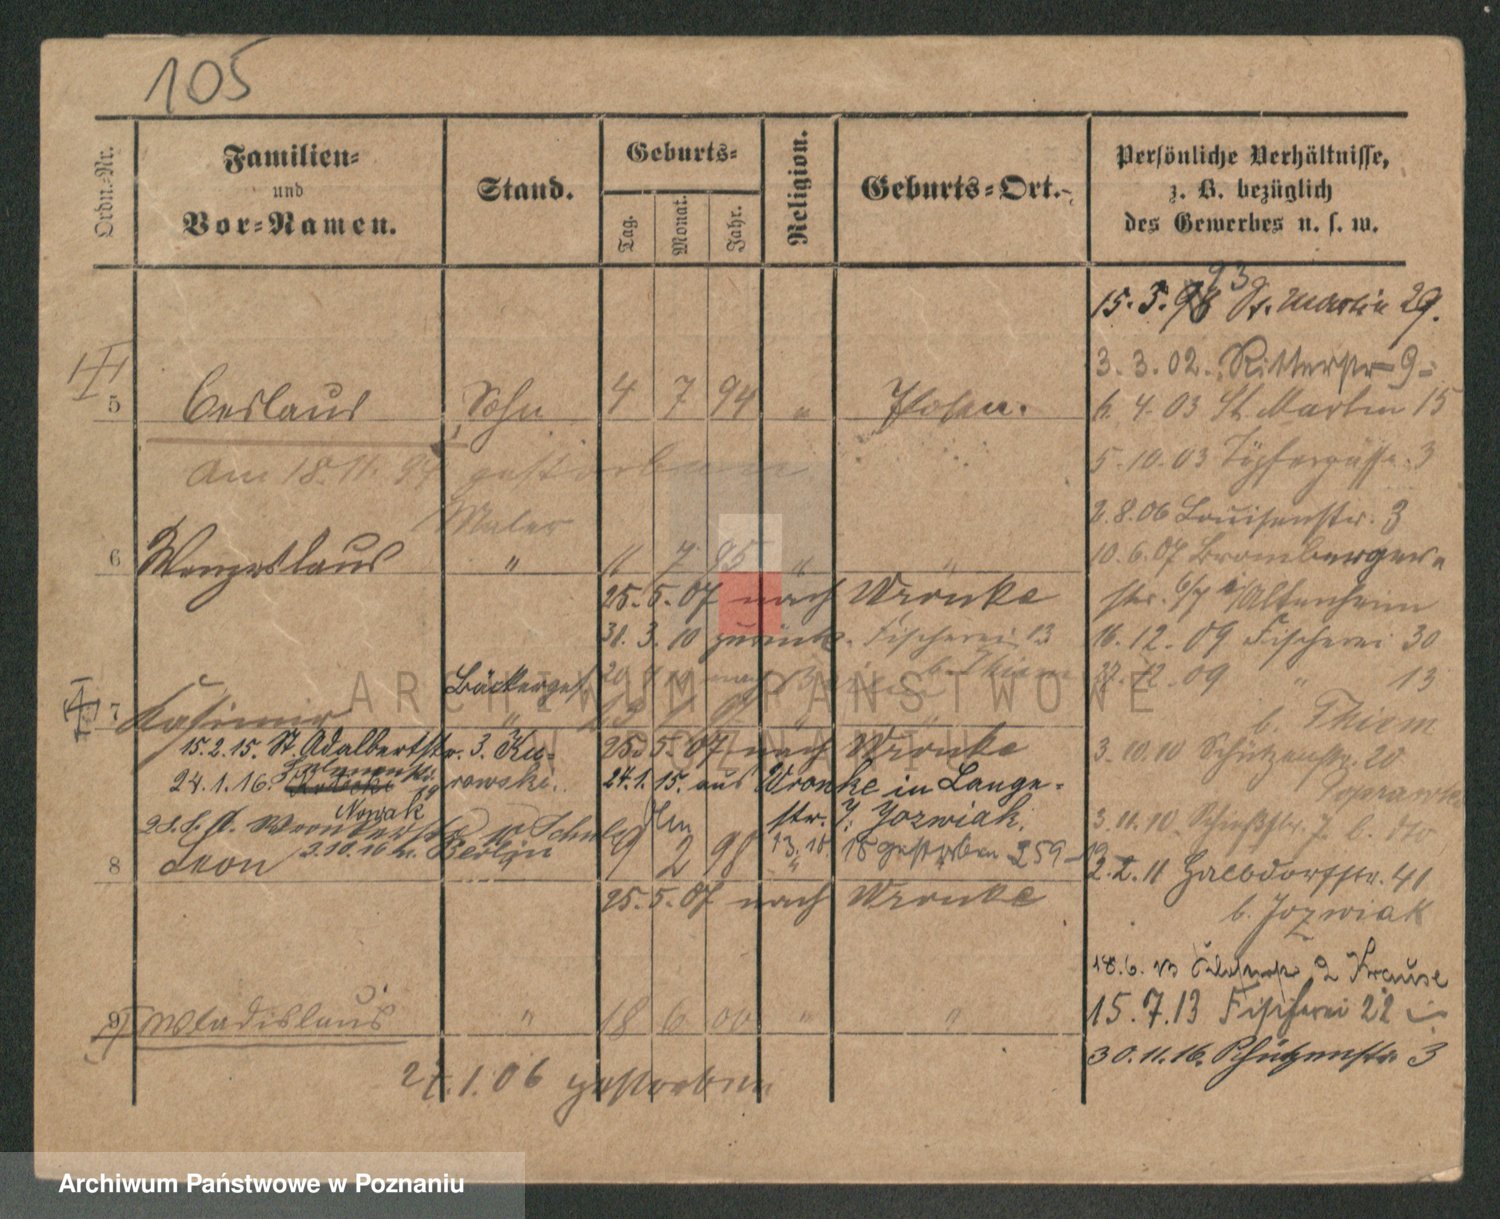 105
Ordn.-Nr.
Familien-
und
Vor-Namen.
Stand.
Geburts-
Tag.
Monat.
Jahr.
Religion.
Geburts-Ort.
Persönliche Verhältnisse,
z. B. bezüglich
des Gewerbes u. s. w.
15. 5. 93 St. Martin 29.
3. 3. 02. Ritterstr 9
5 Ceslaus Sohn 4 7 94 " Posen.
6. 4. 03 St. Martin 15
Am 18. 11. 94 gestorben
5. 10. 03 Töpfergasse 3
Maler
2. 8. 06 Louisenstr. 3
6 Wenzeslaus " 7 95 " "
10. 6. 07 Bromberger
25. 5. 07 nach Wronke
str. 6/7 Altenheim
31. 3. 10 zurück. Fischerei 13
16. 12. 09 Fischerei 30
Bäckerges.
27. 12. 09 " 13
7 Kasimir "
b. Thiem
15. 2. 15. St. Adalbertstr. 3. Ku-
rowski.
25. 5. 07 nach Wronke
3. 10. 10 Schützenstr. 20
24. 1. 16.
24. 1. 15. aus Wronke in Lange-
Nowak
str. 7. Jozwiak.
3. 11. 10. Schießstr. 7 b. dto
8 Leon 9 2 98 "
3. 10. 16 n. Berlin
18 gestorben 259
2. 2. 11 Halbdorfstr. 41
25. 5. 07 nach Wronke
b. Jozwiak
18. 6. 13 2 Krause
15. 7. 13 Fischerei 22
9 Wladislaus " 18 6 00 " "
30. 11. 16. Schützenstr 3
27. 1. 06 gestorben
ARCHIWUM PAŃSTWOWE
W POZNANIU
Archiwum Państwowe w Poznaniu